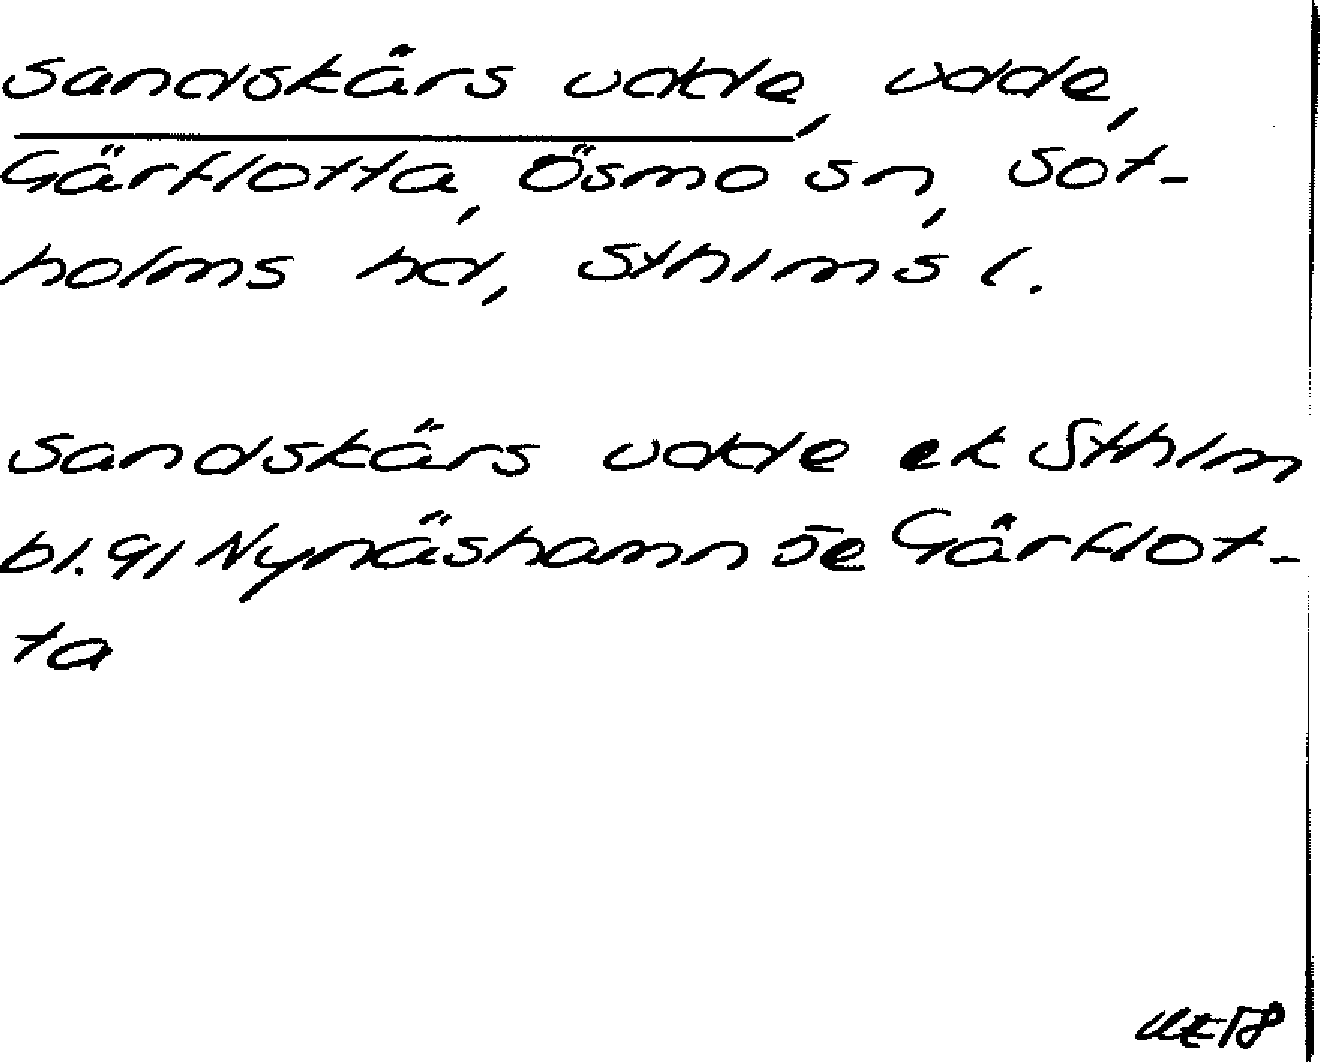 Sandskärs udde, udde,
Gärflotta, Ösmo sn, Sot-
holms hd, Sthlms l.
Sandskärs udde ek Sthlm
bl. 91 Nynäshamn Se Gärflot-
ta